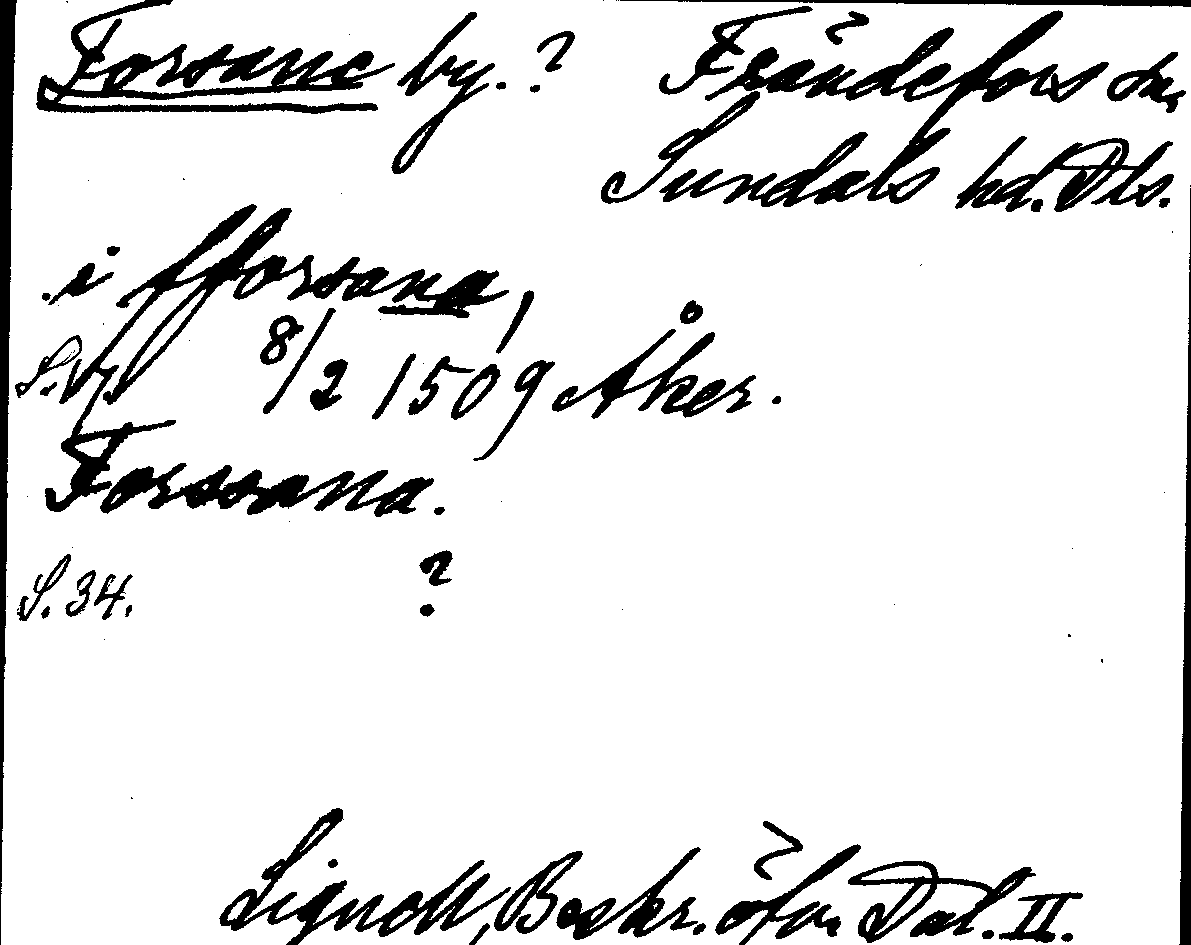 Forsane by. ? Frändefors sn,
Sundals hd. Dls.
i fforsana,
8/2 1509 Åker.
Forssana.
S. 34. ?
Lignell, Beskr. öfv. Dal. II.